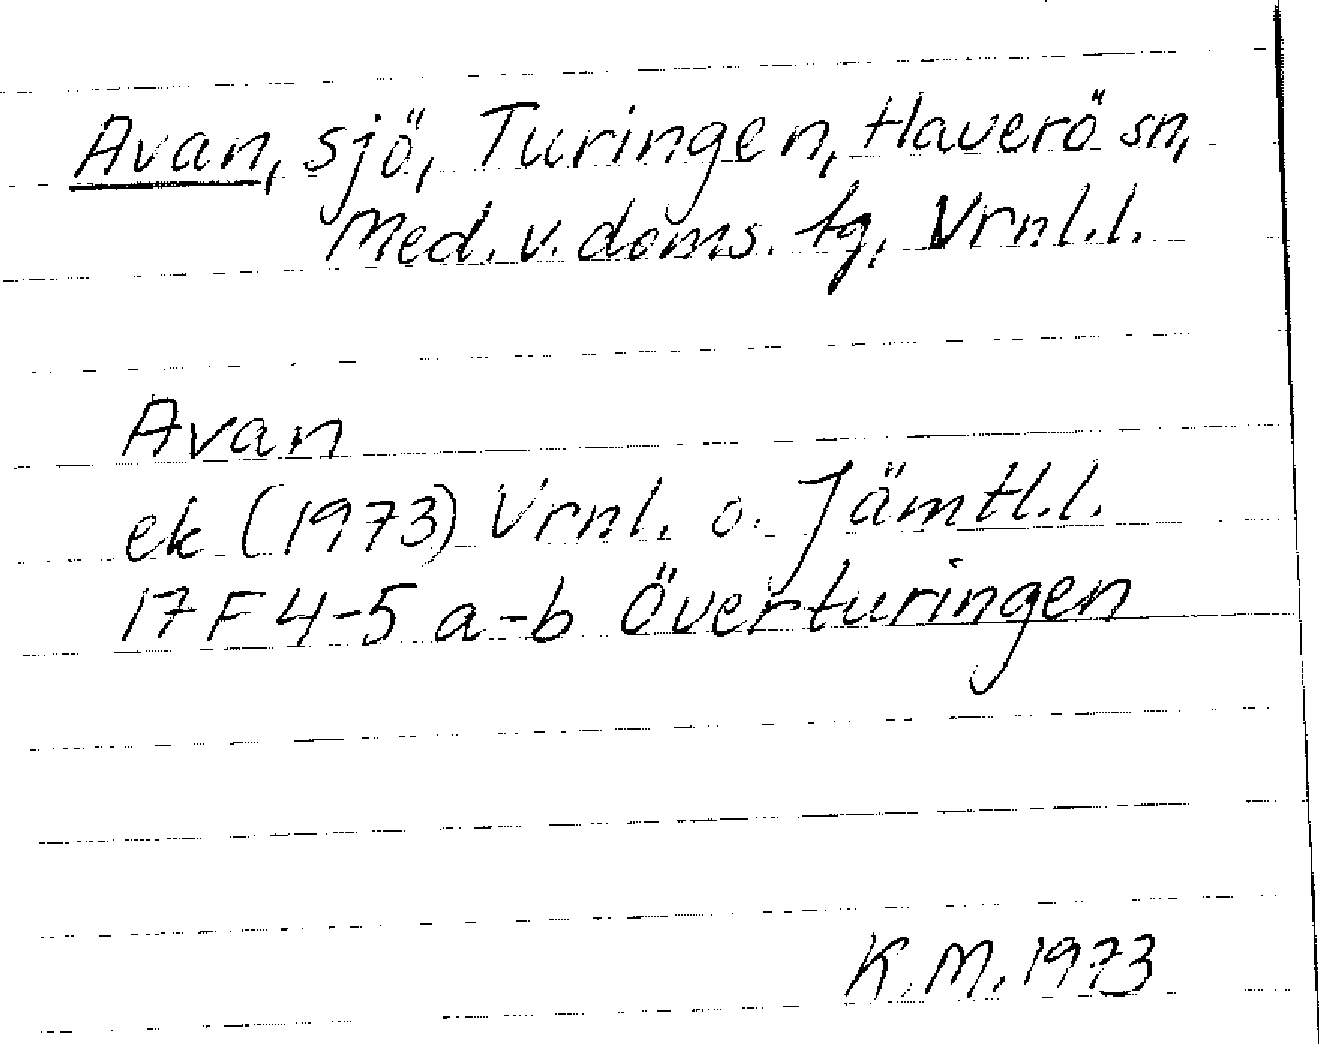 Avan, sjö, Turingen, Haverö sn,
Med. v. doms. tg, Vrnl.l.
Avan
ek (1973) Vrnl. o. Jämtl.l.
17 F 4-5 a-b Överturingen
K.M. 1973